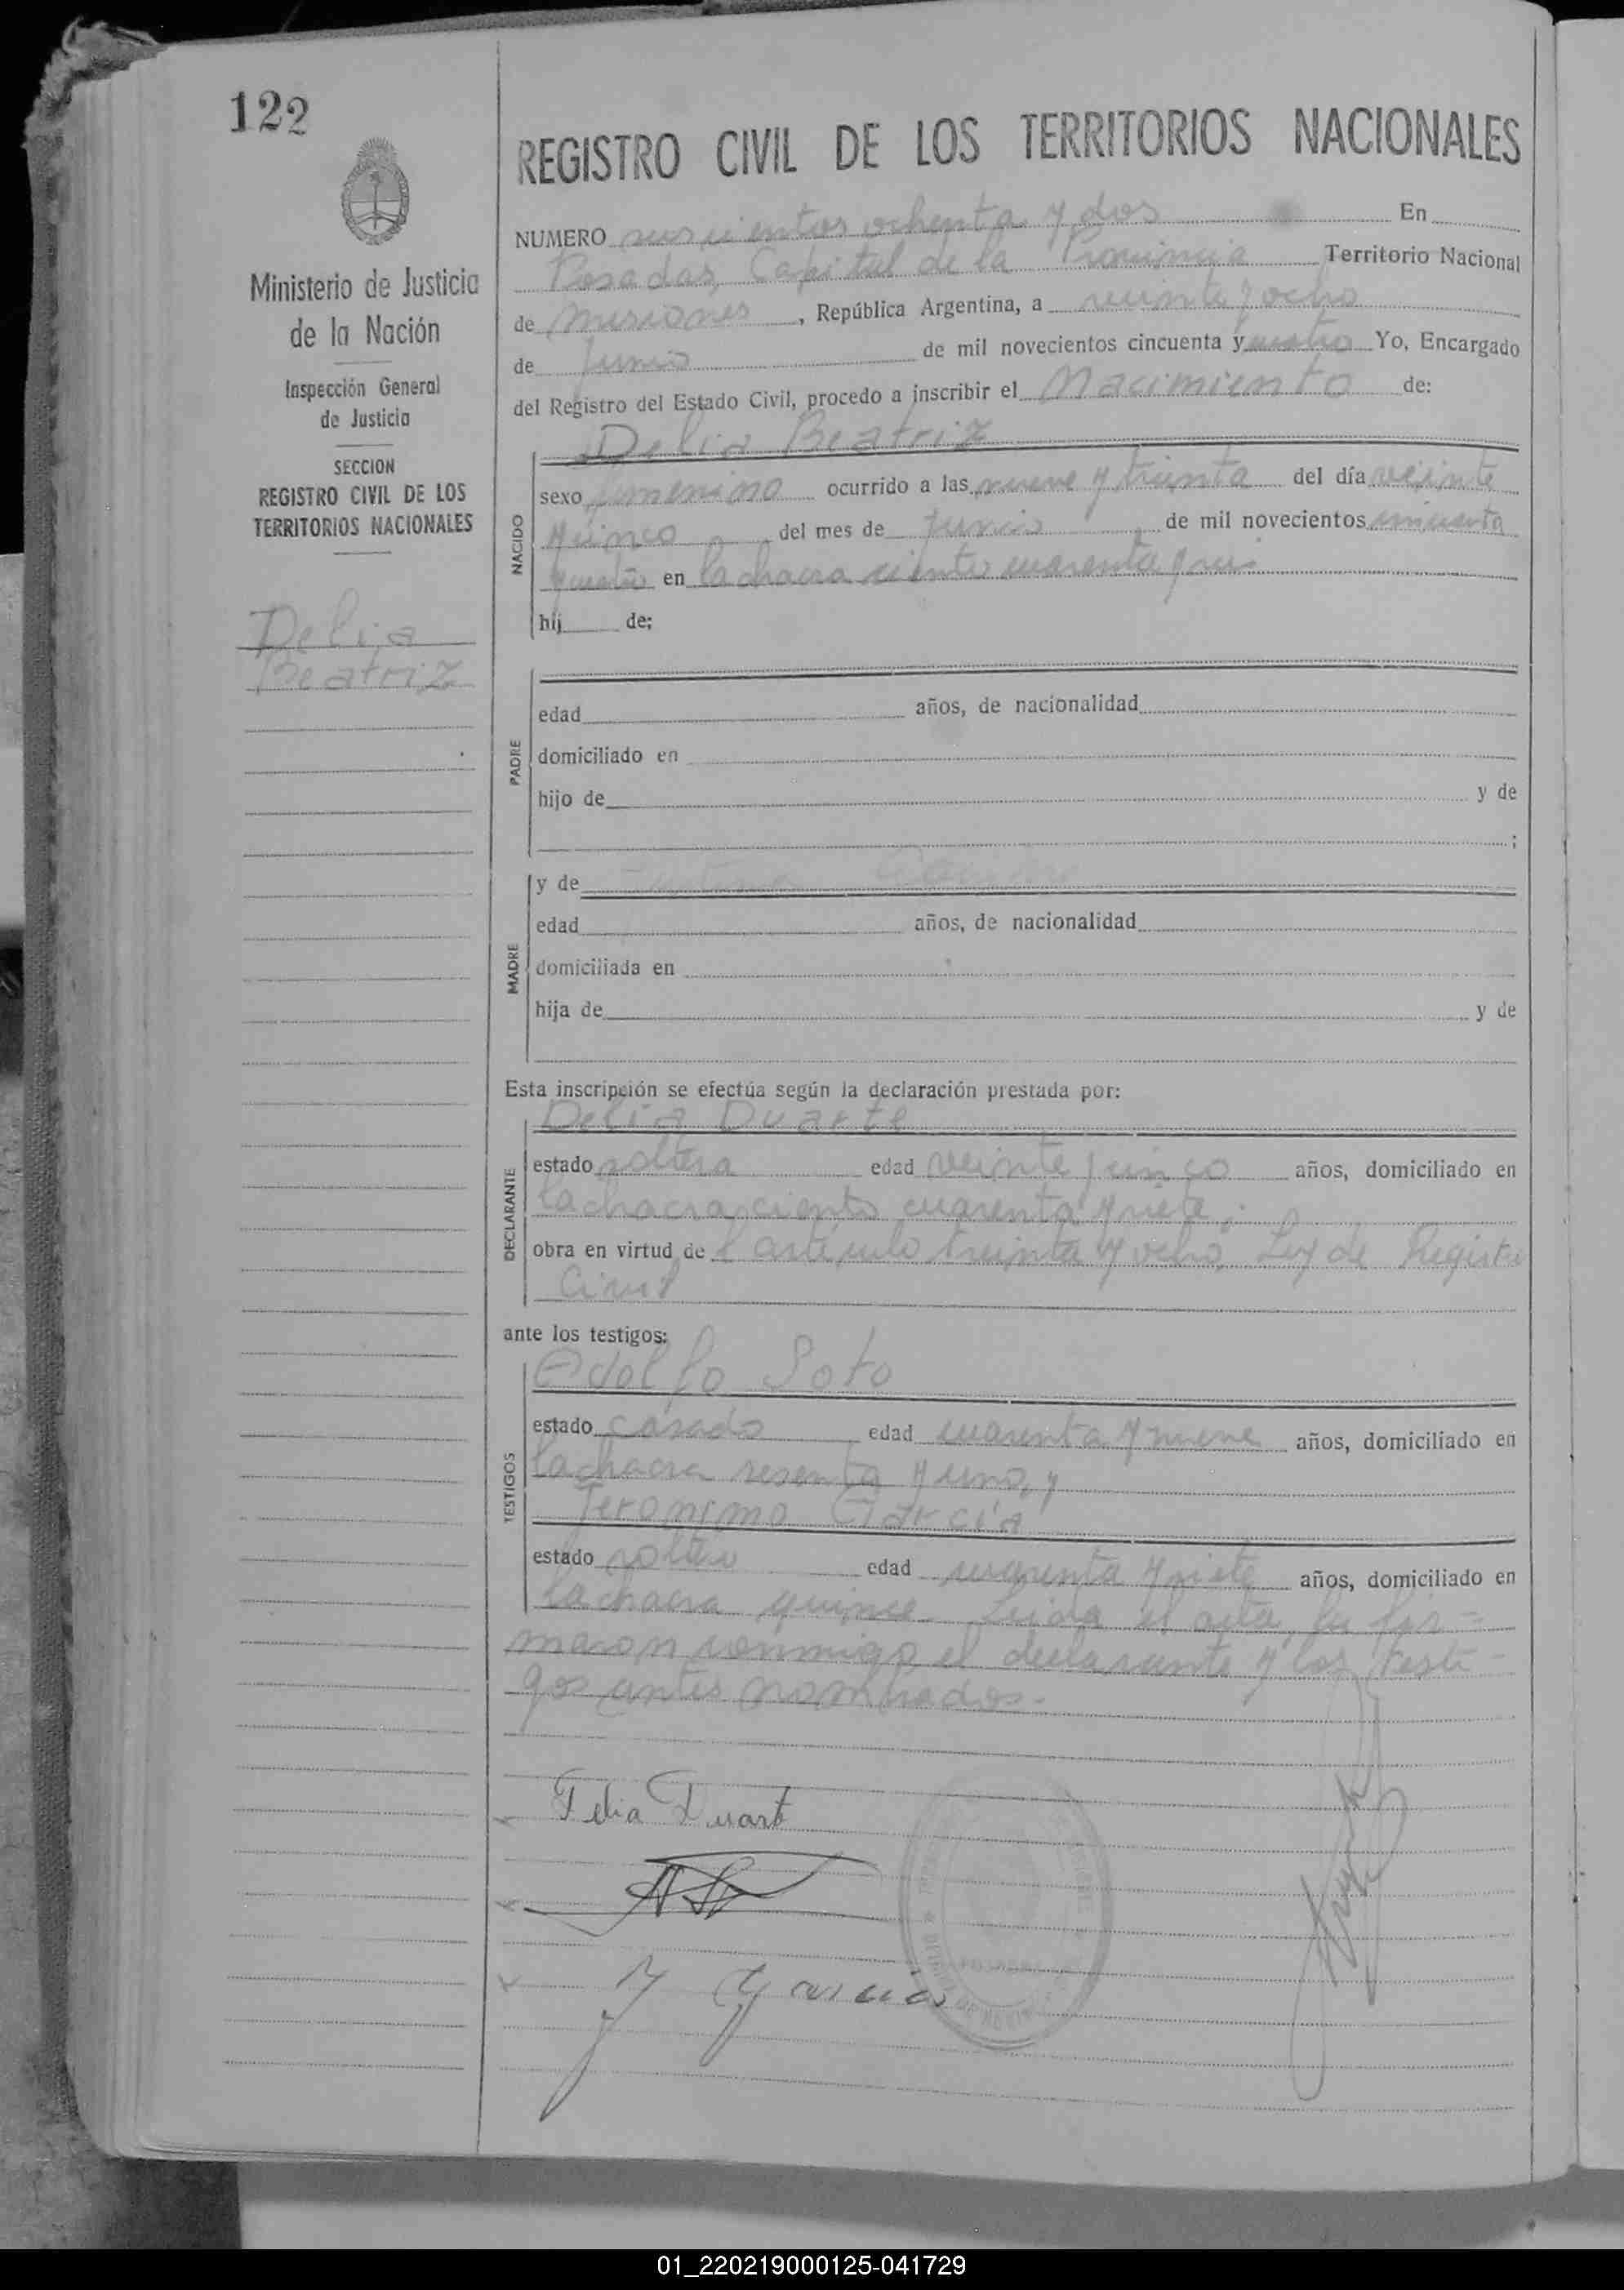 122
Ministerio de Justicia
de la Nación
Inspección General
de Justicia
SECCION
REGISTRO CIVIL DE LOS
TERRITORIOS NACIONALES
Delia
Beatriz
REGISTRO CIVIL DE LOS TERRITORIOS NACIONALES
NUMERO seiscientos ochenta y dos En
Posadas, Capital de la Provincia Territorio Nacional
de Misiones, República Argentina, a veinte y ocho
de Junio de mil novecientos cincuenta y cuatro Yo, Encargado
del Registro del Estado Civil, procedo a inscribir el Nacimiento de:
Delia Beatriz
NACIDO
sexo femenino ocurrido a las nueve y treinta del día veinte
y cinco del mes de Junio de mil novecientos cincuenta
y cuatro en la chacra ciento cuarenta y
hij de:
PADRE
edad años, de nacionalidad
domiciliado en
hijo de y de
;
MADRE
y de
edad años, de nacionalidad
domiciliada en
hija de y de
Esta inscripción se efectúa según la declaración prestada por:
Delia Duarte
DECLARANTE
estado soltera edad veinte y cinco años, domiciliado en
la chacra ciento cuarenta y siete;
obra en virtud de l artículo treinta y ocho, Ley de Registro
Civil
ante los testigos:
Adolfo Soto
TESTIGOS
estado casado edad cuarenta y nueve años, domiciliado en
la chacra sesenta y uno, y
Jeronimo Garcia
estado soltero edad cuarenta y siete años, domiciliado en
la chacra quince. Leida el acta, la fir=
maron conmigo, el declarante y los testi-
gos antes nombrados.-
Delia Duarte
J Garcia
01_220219000125-041729